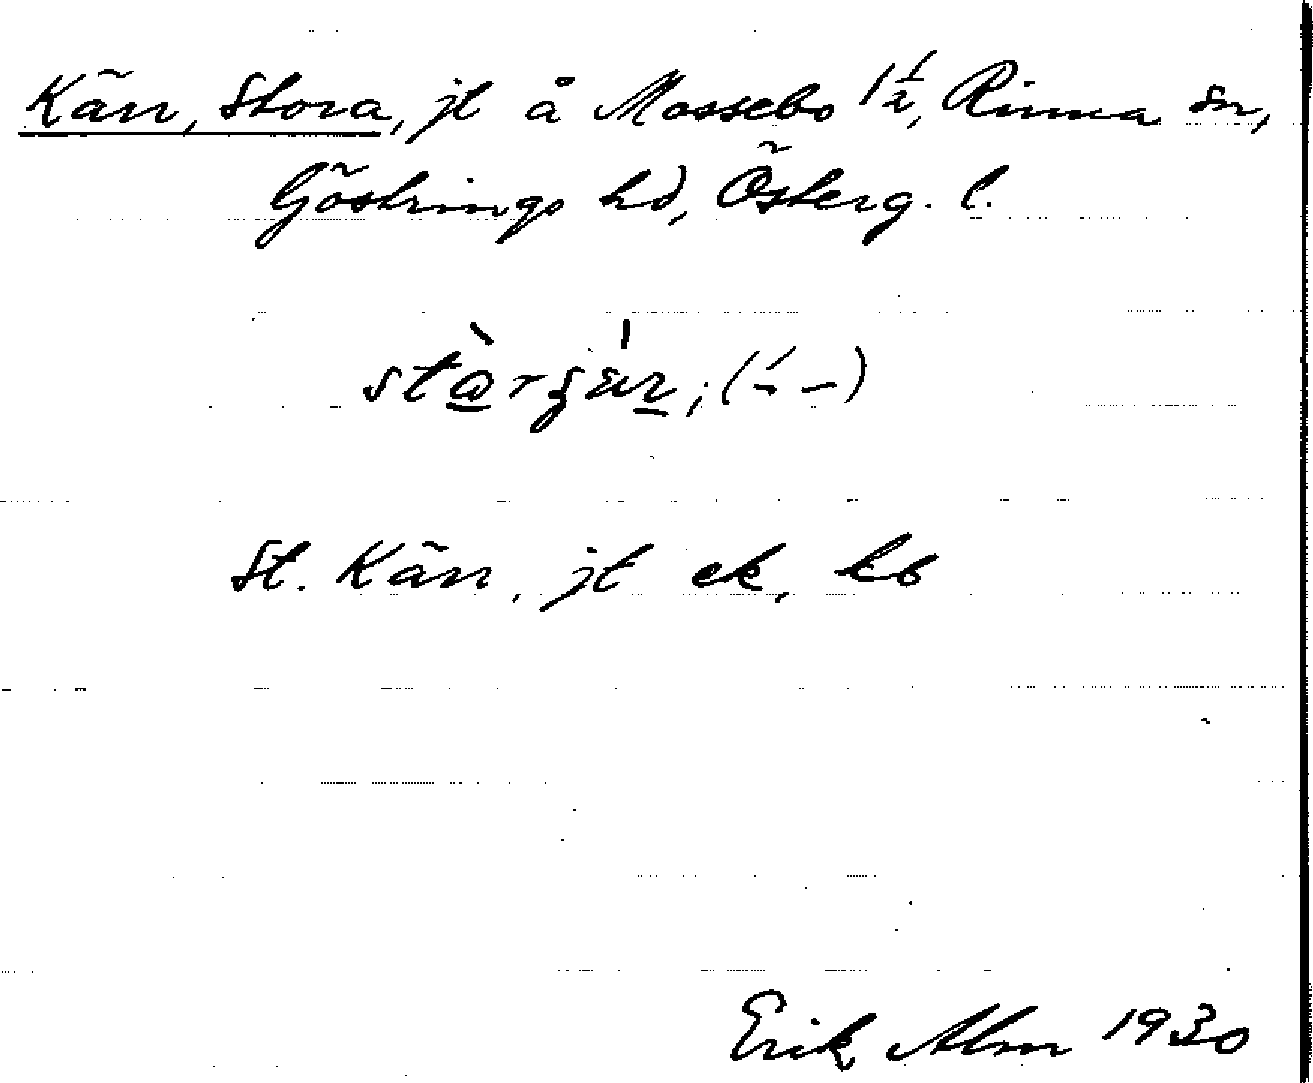 Kärr, Stora, jt å Mossebo 1 1/2, Rinna sn,
Göstrings hd, Österg. l.
St. Kärr, jt ek, kb
Erik Alm 1930